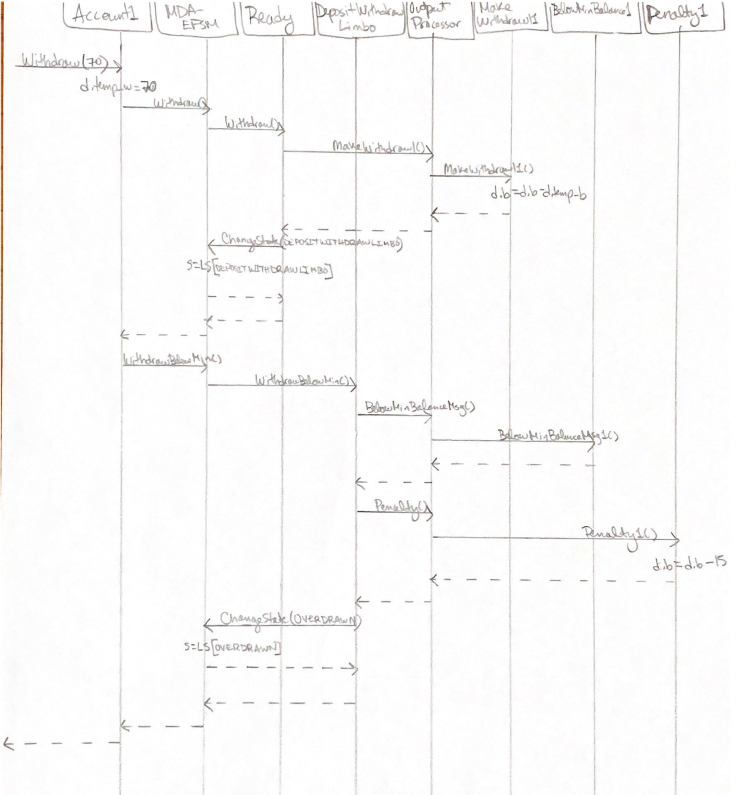 Account1
MDA-
EFSM
Ready
DepositWithdraw
Limbo
Output
Processor
Make
Withdrawl1
BelowMinBalance1
Penalty1
Withdraw(70)
d.temp_w=70
Withdraw()
Withdraw()
MakeWithdrawl()
MakeWithdrawl1()
d.b=d.b-d.temp-b
ChangeState(DEPOSITWITHDRAWLIMBO)
S=LS[DEPOSITWITHDRAWLIMBO]
WithdrawBelowMin()
WithdrawBelowMin()
BelowMinBalanceMsg()
BelowMinBalanceMsg1()
Penalty()
Penalty1()
d.b=d.b-15
ChangeState(OVERDRAWN)
S=LS[OVERDRAWN]